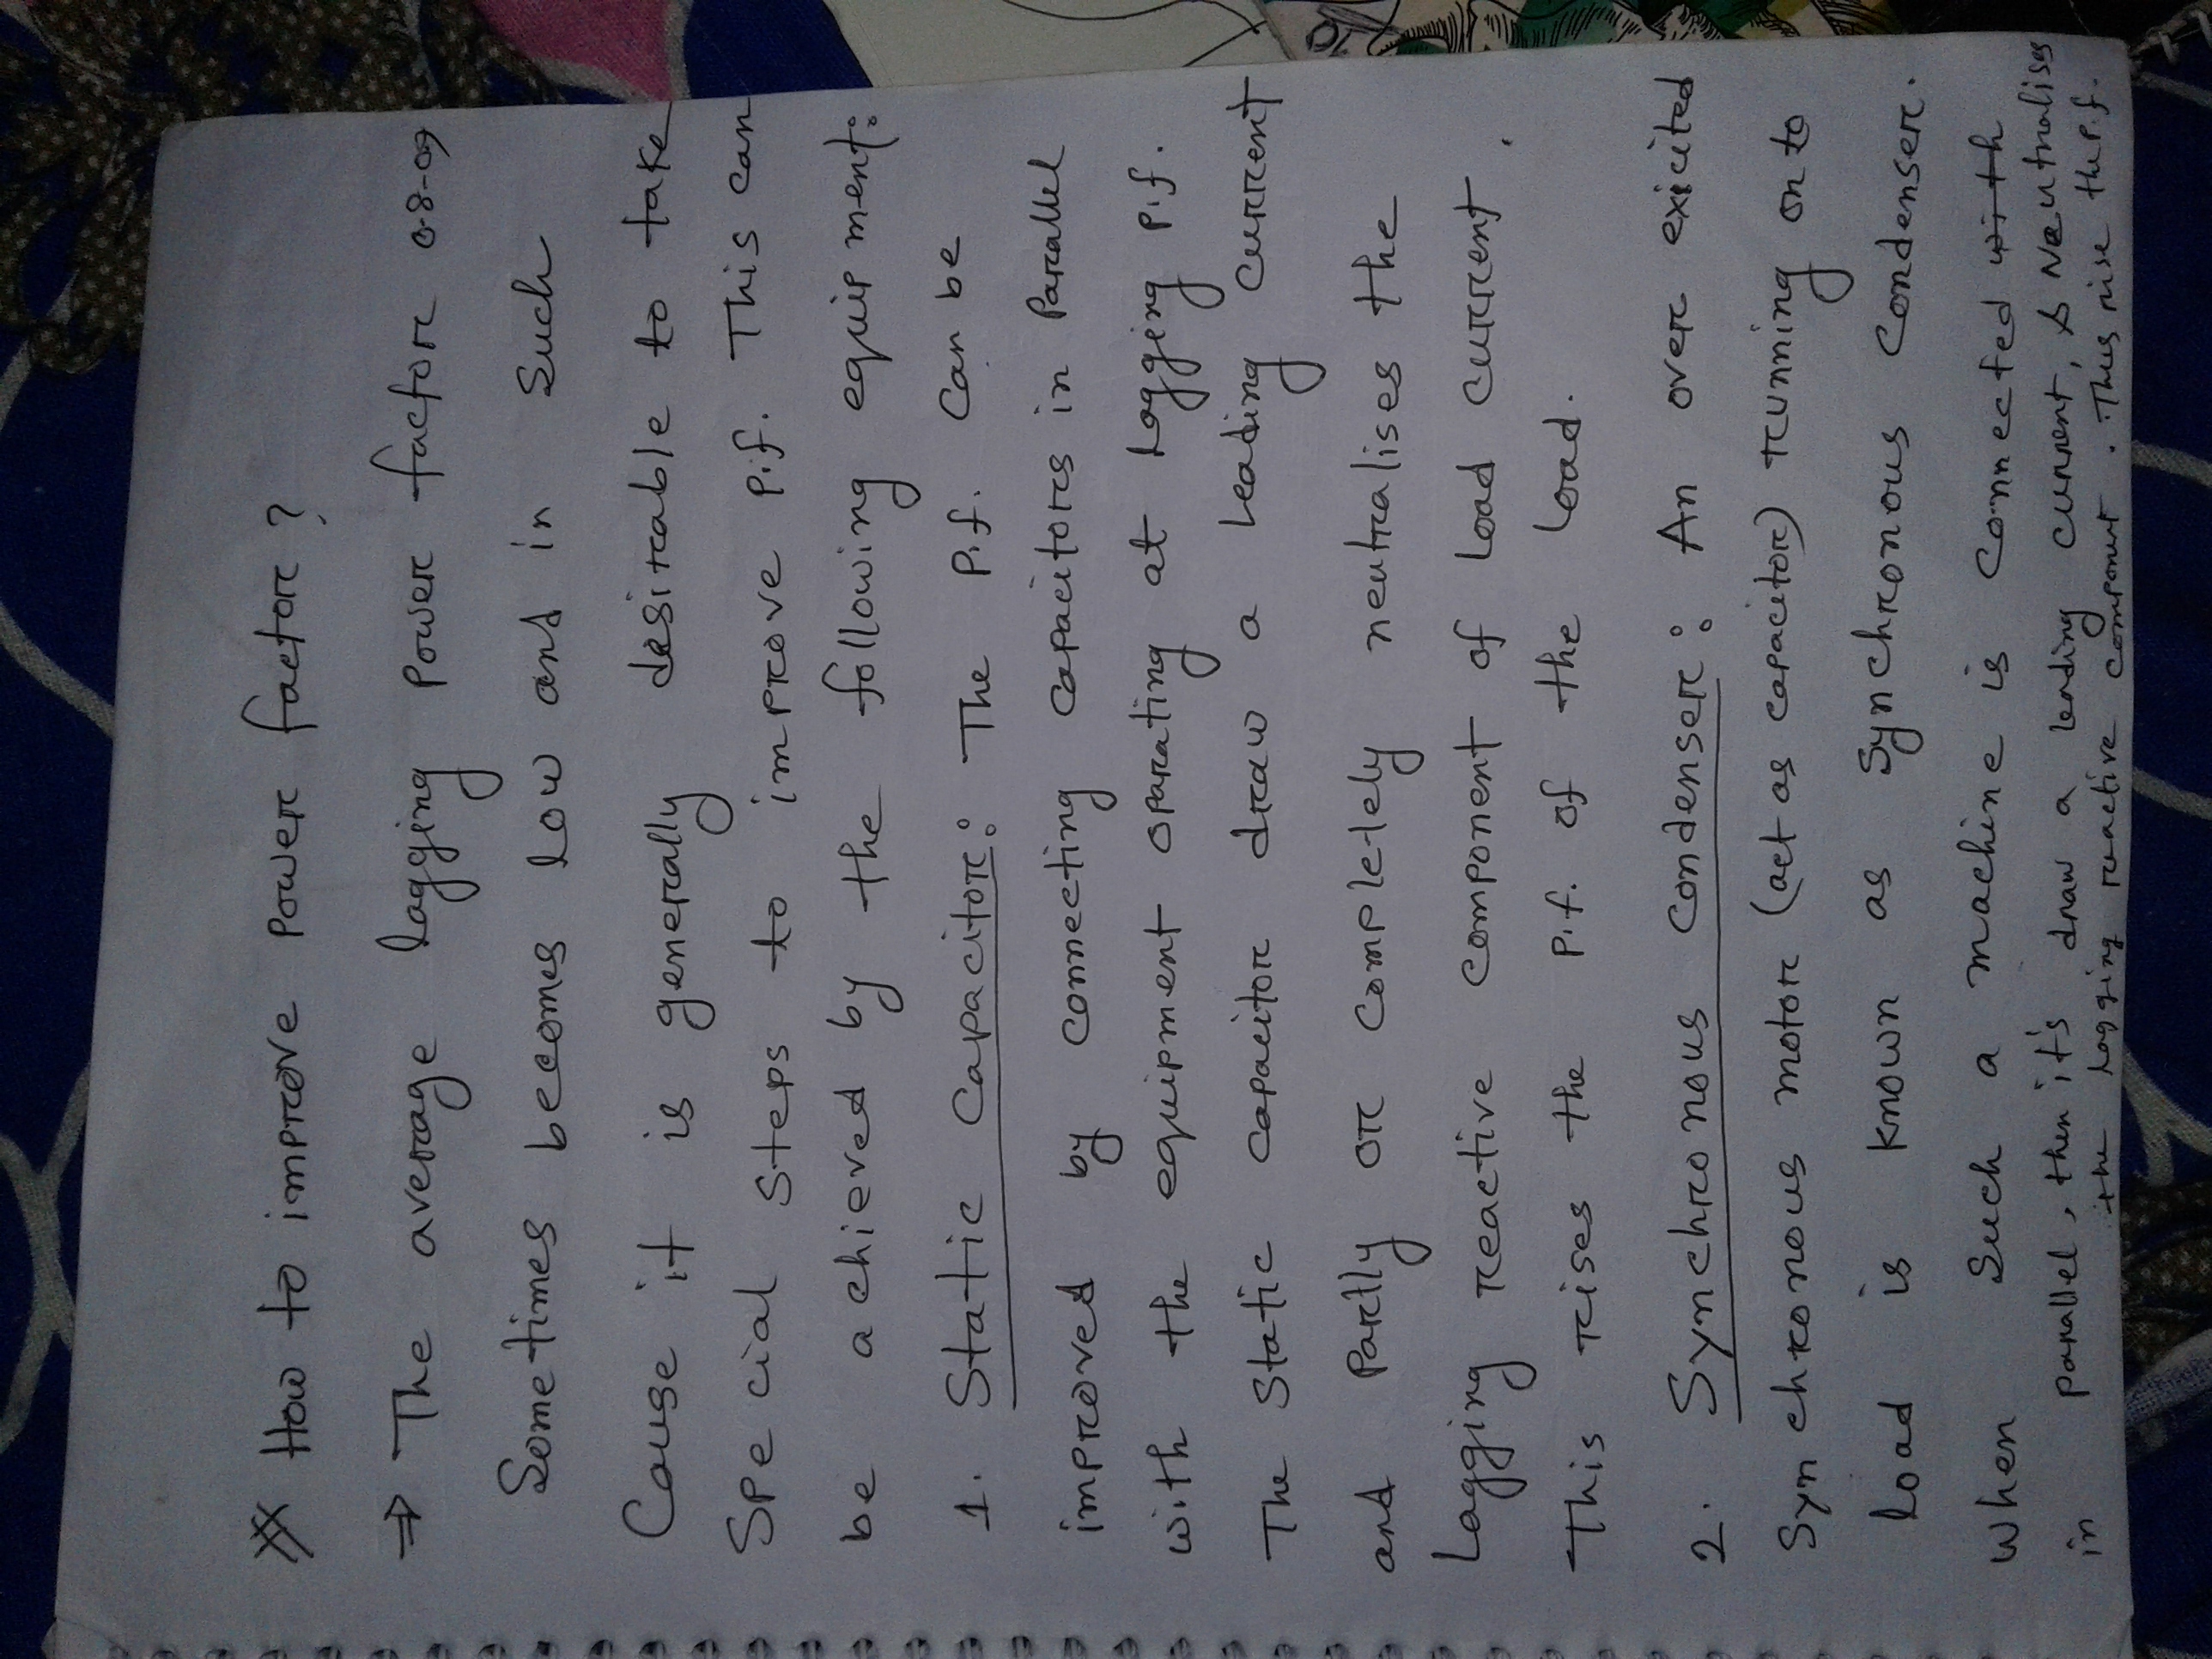 How to improve power factor ?
⇒ The average lagging power factor 0.8-0.9
Sometimes becomes low and in such
Cause it is generally desirable to take
Special steps to improve p.f. This can
be achieved by the following equipment:
1. Static Capacitor: The P.f. can be
improved by connecting capacitors in Parallel
with the equipment oparating at lagging p.f.
The static capacitor draw a leading current
and Partly or completely neutralises the
Lagging reactive component of load current.
This rises the P.f. of the load.
2. Synchronous Condenser: An over exicited
Synchronous motor (act as capacitor) running on to
load is known as Synchronous Condenser.
When such a machine is connected with
in parallel, then it's draw a leading current, & Neutralises
the lagging reactive component. Thus rise the P.f.